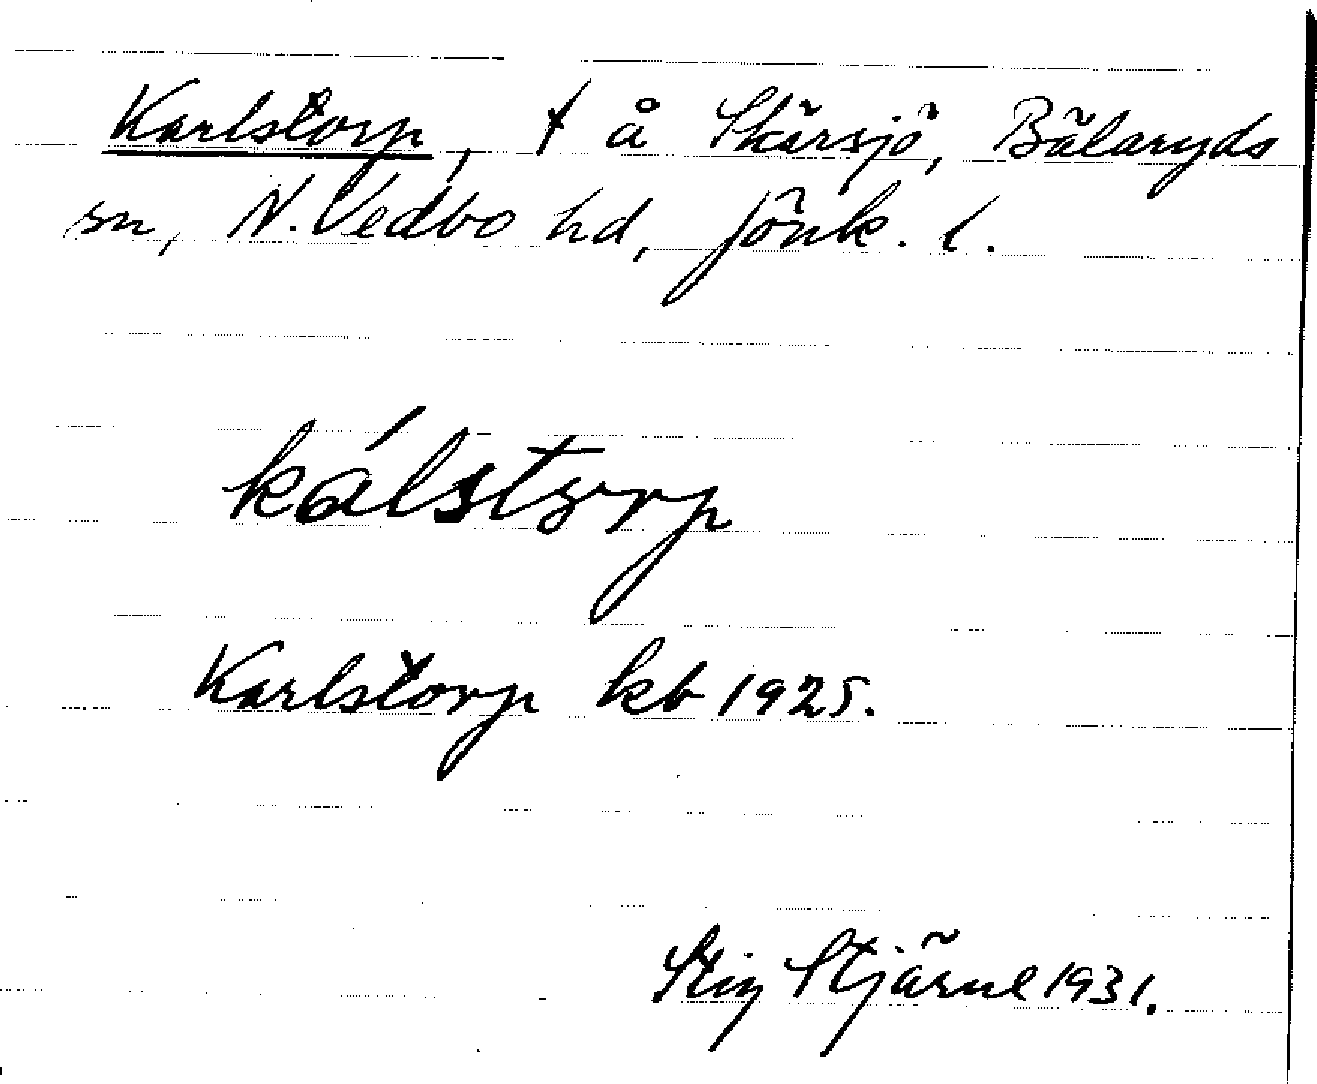 Karlstorp, t å Skärsjö, Bälaryds
sn, N. Vedbo hd, Jönk. l.
kálstorp
Karlstorp kb 1925.
Stig Stjärne 1931.